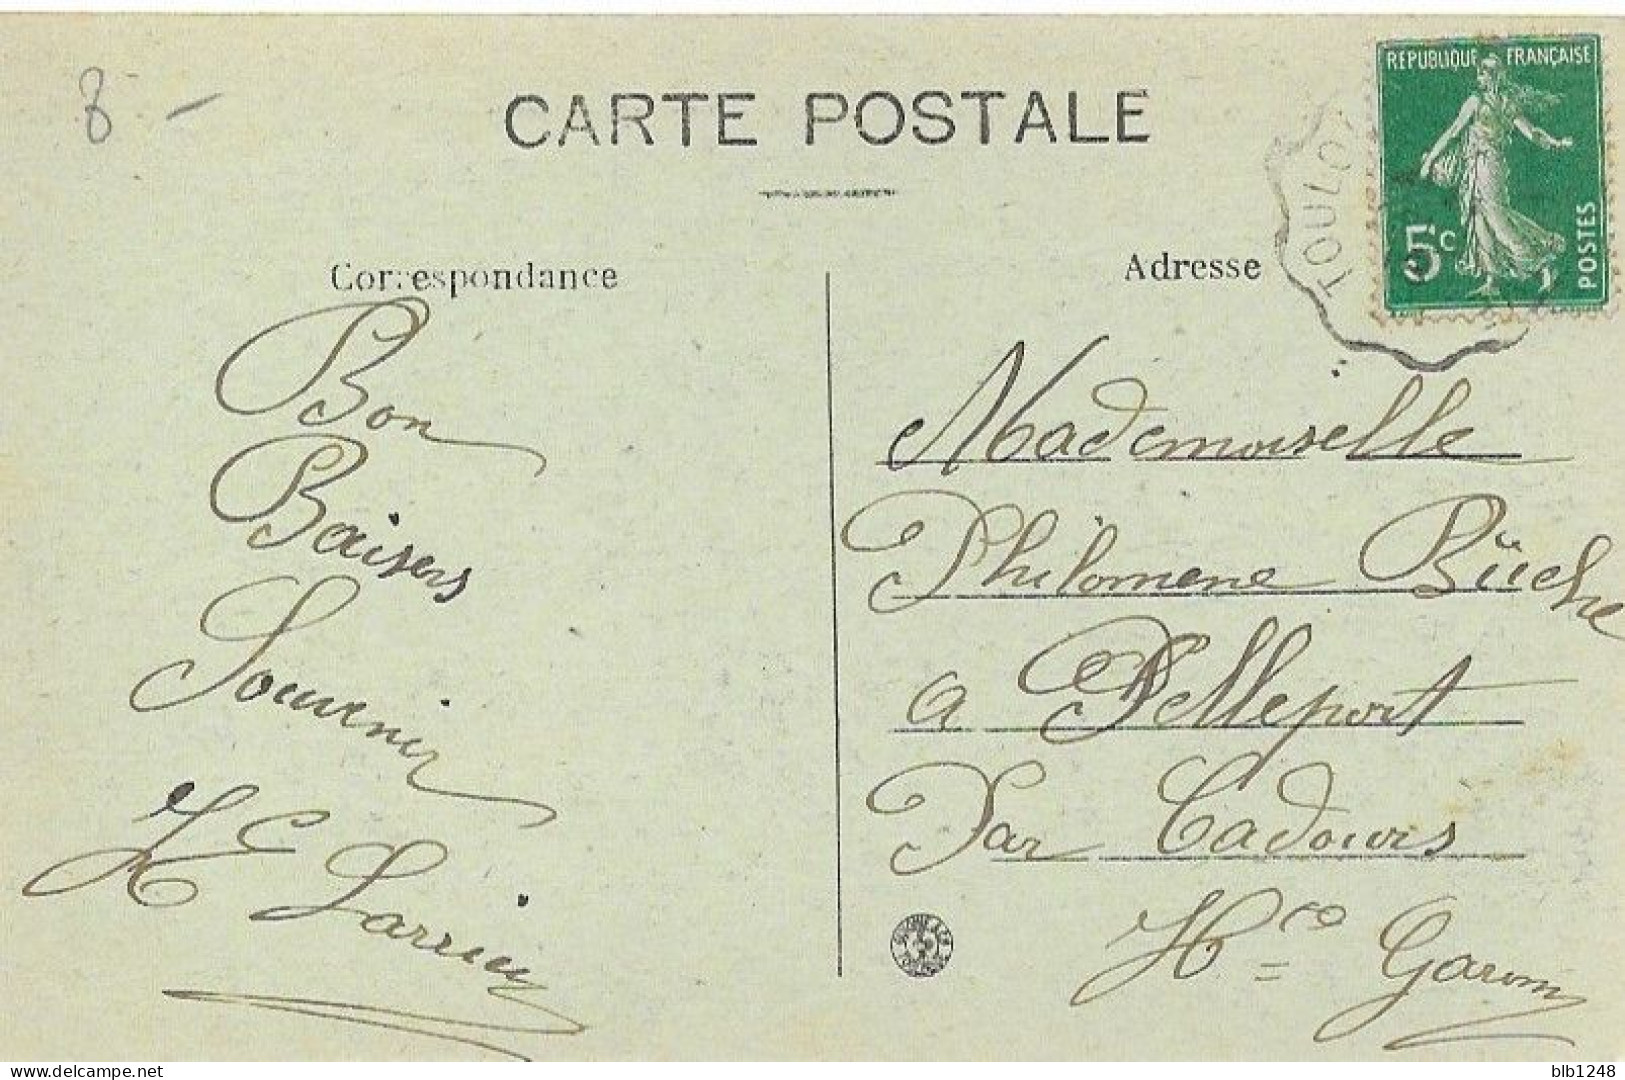 8 -
CARTE POSTALE
REPUBLIQUE FRANÇAISE
5c
POSTES
TOULO
Correspondance
Adresse
Bon
Baisers
Souvenir
Larrieu
Mademoiselle
Philomene Büche
a Pelleport
Par Cadours
Hce Garonn
www.delcampe.net
blb1248